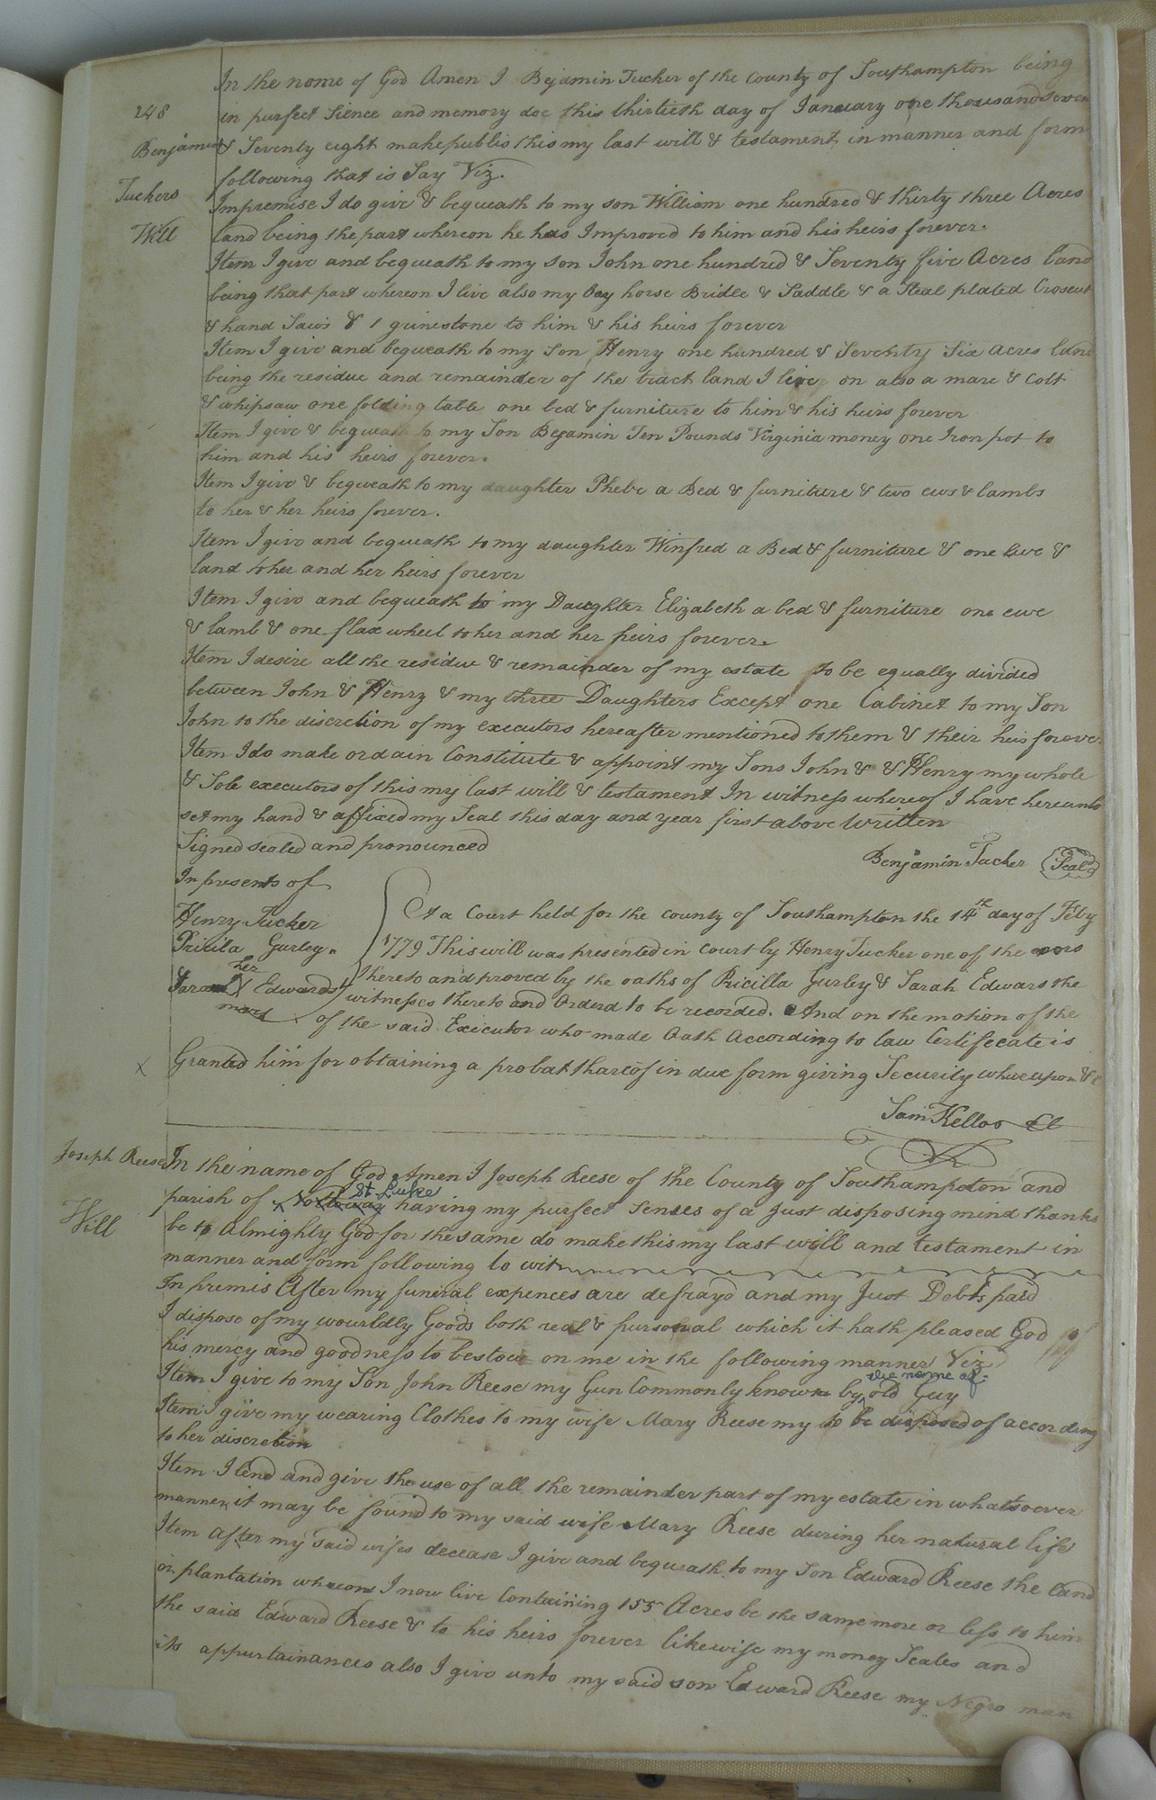 248
Benjamin
Tuckers
Will
In the nome of God Amen I Bejamin Tucker of the County of Southampton being
in purfect Sience and memory doe this thirtieth day of January one thousand seven
& Seventy eight make publis this my last will & testament in manner and form
following that is Say Viz.
Impremise I do give & bequeath to my son William one hundred & thirty three Acres
land being the part whereon he has Improved to him and his heirs forever.
Item I give and bequeath to my son John one hundred & Seventy five Acres land
being that part whereon I live also my bay horse Bridle & Saddle & a Steal plated Croscut
& hand Saws & 1 grinestone to him & his heirs forever
Item I give and bequeath to my son Henry one hundred & Seventy Six acres land
being the residue and remainder of the tract land I live on also a mare & Colt
& whipsaw one folding table one bed & furniture to him & his heirs forever
Item I give & bequeath to my Son Bejamin Ten Pounds Virginia money one Iron pot to
him and his heirs forever.
Item I give & bequeath to my daughter Phebe a Bed & furniture & two ews & lambs
to her & her heirs forever.
Item I give and bequeath to my daughter Winfred a Bed & furniture & one Ewe &
land to her and her heirs forever
Item I give and bequeath to my Daughter Elizabeth a bed & furniture one ewe
& lamb & one flax wheel to her and her heirs forever.
Item I desire all the residue & remainder of my estate to be equally divided
between John & Henry & my three Daughters Except one Cabinet to my Son
John to the discretion of my executors hereafter mentioned to them & their heis forever
Item I do make ordain Constitute & appoint my Sons John & & Henry my whole
& Sole executors of this my last will & testament In witness whereof I have hereunto
set my hand & affixed my Seal this day and year first above Written
Signed sealed and pronounced
Benjamin Tucker Seal
In presents of
Henry Tucker
Pricila Gurley.
her
Sarah X Edwards
mark
At a Court held for the county of Southampton the 14th day of Feby
1779 This will was presented in Court by Henry Tucker one of the exors
thereto and proved by the oaths of Pricilla Gurley & Sarah Edwars the
witnesses thereto and Orderd to be recorded. And on the motion of the
of the said Executor who made Oath According to law Certifecate is
X Granted him for obtaining a probat thareof in due form giving Security whereupon &c
Sam Kellos Cl
Joseph Reese
Will
In the name of God Amen I Joseph Reese of the County of Southampton and
St Luke
parish of Nottoway having my purfect Senses of a Just disposing mind thanks
be to Almighty God for the same do make this my last will and testament in
manner and form following to wit
In premis After my funiral expences are defrayd and my Just Debts paid
I dispose of my wourldly Goods both real & pursonal which it hath pleased God of
his mercy and goodness to bestow on me in the following manner Viz
the name of
Item I give to my Son John Reese my Gun Commonly known by old Guy
Item I give my wearing Clothes to my wife Mary Reese my to be disposed of according
to her discretion
Item I lend and give the use of all the remainder part of my estate in whatsoever
manner it may be found to my said wife Mary Reese during her natural life
Item After my said wifes decease I give and bequeath to my Son Edward Reese the Land
or plantation whereon I now live Containing 155 Acres be the same more or less to him
the said Edward Reese & to his heirs forever likewise my money Scales and
its appurtainances also I give unto my said son Edward Reese my Negro man